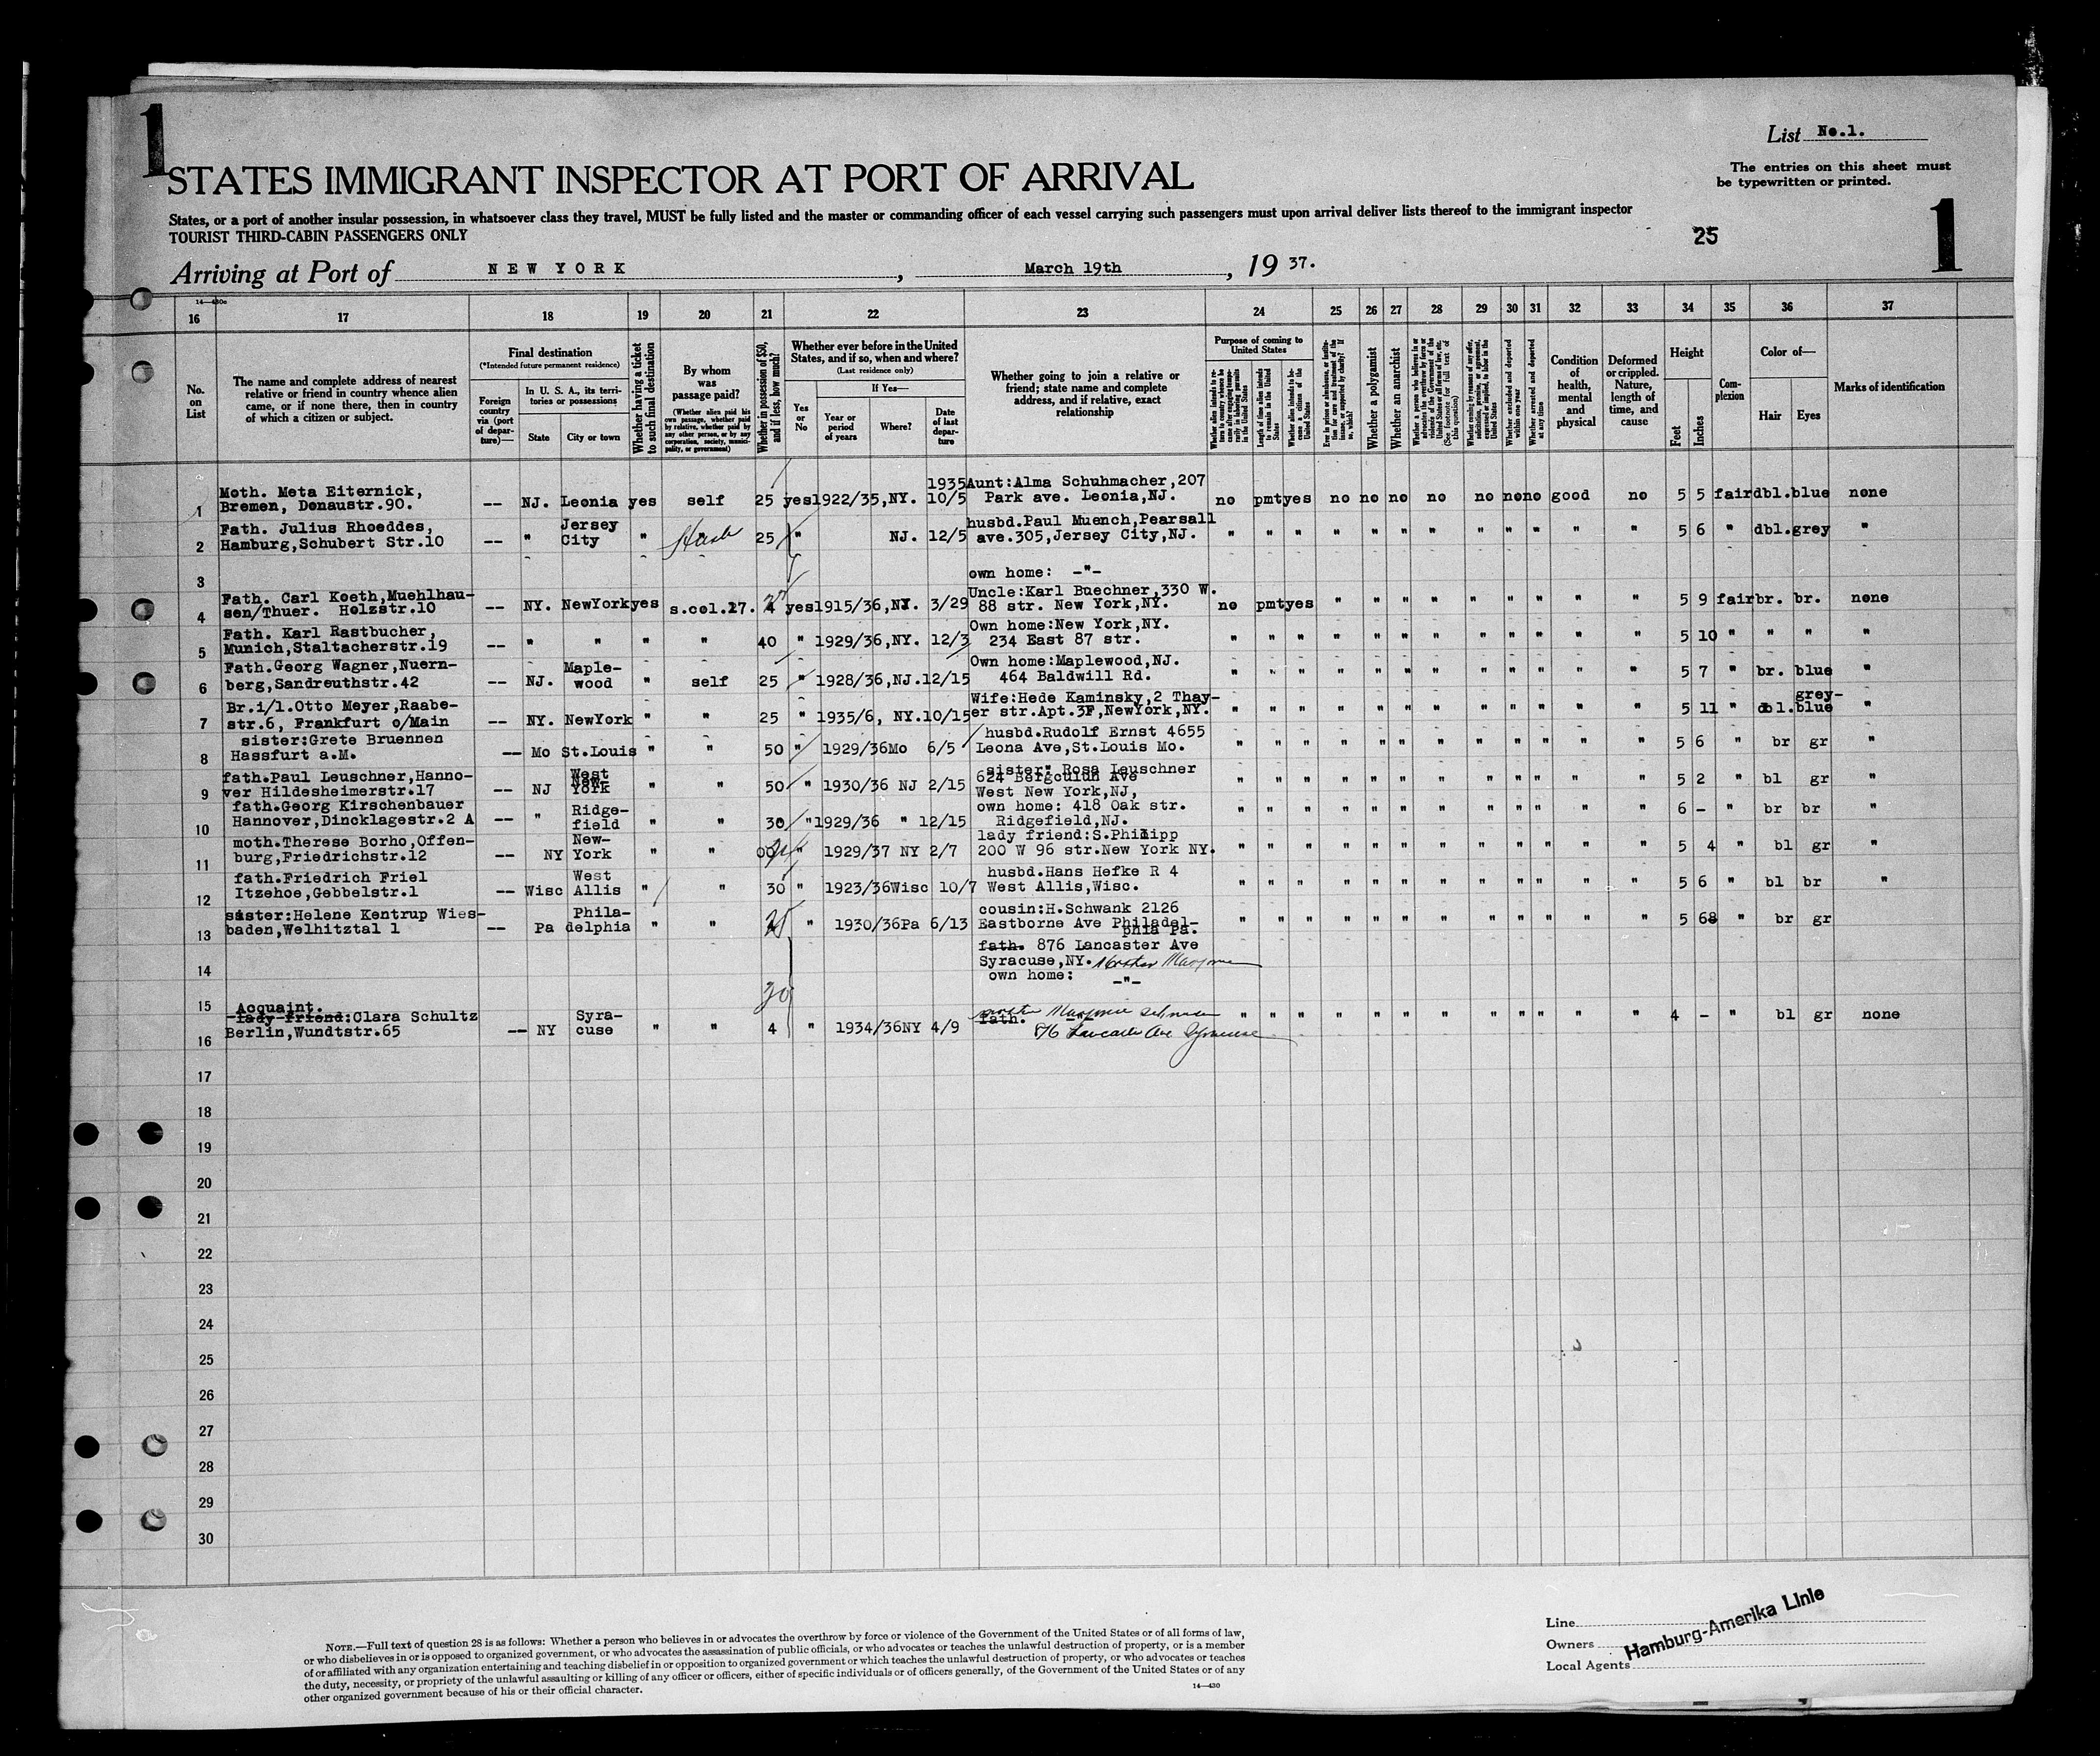 1
List No.1.
STATES IMMIGRANT INSPECTOR AT PORT OF ARRIVAL
The entries on this sheet must
be typewritten or printed.
States, or a port of another insular possession, in whatsoever class they travel, MUST be fully listed and the master or commanding officer of each vessel carrying such passengers must upon arrival deliver lists thereof to the immigrant inspector
TOURIST THIRD-CABIN PASSENGERS ONLY
25
1
Arriving at Port of NEW YORK, March 19th, 19 37.
14—430c
16 17 18 19 20 21 22 23 24 25 26 27 28 29 30 31 32 33 34 35 36 37
No. on List
The name and complete address of nearest relative or friend in country whence alien came, or if none there, then in country of which a citizen or subject.
Final destination
(*Intended future permanent residence)
Foreign country via (port of departure)—
In U. S. A., its territories or possessions
State
City or town
Whether having a ticket to such final destination
By whom was passage paid?
(Whether alien paid his own passage, whether paid by relative, whether paid by any other person, or by any corporation, society, municipality, or government)
Whether in possession of $50, and if less, how much?
Whether ever before in the United States, and if so, when and where?
(Last residence only)
Yes or No
If Yes—
Year or period of years
Where?
Date of last departure
Whether going to join a relative or friend; state name and complete address, and if relative, exact relationship
Purpose of coming to United States
Length of time alien intends to remain in the United States
Whether alien intends to become a citizen of the United States
Whether a polygamist
Whether an anarchist
Whether excluded and deported within one year
Whether arrested and deported at any time
Condition of health, mental and physical
Deformed or crippled. Nature, length of time, and cause
Height
Feet
Inches
Complexion
Color of—
Hair
Eyes
Marks of identification
1 Moth. Meta Eiternick, Bremen, Donaustr.90. -- NJ. Leonia yes self 25 yes 1922/35,NY. 1935 10/5 Aunt:Alma Schuhmacher,207 Park ave. Leonia,NJ. no pmt yes no no no no no no no good no 5 5 fair dbl. blue none
2 Fath. Julius Rhoeddes, Hamburg,Schubert Str.10 -- " Jersey City " 25 " NJ. 12/5 husbd.Paul Muench,Pearsall ave.305,Jersey City,NJ. " " " " " " " " " " " " 5 6 " dbl. grey "
3 own home: -"-
4 Fath. Carl Koeth,Muehlhausen/Thuer. Holzstr.10 -- NY. NewYork yes s.col.17. 4 yes 1915/36,NJ. 3/29 Uncle:Karl Buechner,330 W. 88 str. New York,NY. no pmt yes " " " " " " " " " 5 9 fair br. br. none
5 Fath. Karl Rastbucher, Munich,Staltacherstr.19 -- " " " " 40 " 1929/36,NY. 12/3 Own home:New York,NY. 234 East 87 str. " " " " " " " " " " " " 5 10 " " " "
6 Fath.Georg Wagner,Nuernberg,Sandreuthstr.42 -- NJ. Maplewood " self 25 " 1928/36,NJ. 12/15 Own home:Maplewood,NJ. 464 Baldwill Rd. " " " " " " " " " " " " 5 7 " br. blue "
7 Br.i/l.Otto Meyer,Raabestr.6, Frankfurt o/Main -- NY. NewYork " " 25 " 1935/6, NY. 10/15 Wife:Hede Kaminsky,2 Thayer str.Apt.3F,NewYork,NY. " " " " " " " " " " " " 5 11 " dbl. grey-blue "
8 sister:Grete Bruennen Hassfurt a.M. -- Mo St.Louis " " 50 " 1929/36 Mo 6/5 husbd.Rudolf Ernst 4655 Leona Ave,St.Louis Mo. " " " " " " " " " " " " 5 6 " br gr "
9 fath.Paul Leuschner,Hannover Hildesheimerstr.17 -- NJ West New-York " " 50 " 1930/36 NJ 2/15 sister: Rosa Leuschner 624 Ave West New York,NJ, " " " " " " " " " " " " 5 2 " bl gr "
10 fath.Georg Kirschenbauer Hannover,Dincklagestr.2 A -- " Ridgefield " " 30 " 1929/36 " 12/15 own home: 418 Oak str. Ridgefield,NJ. " " " " " " " " " " " " 6 - " br br "
11 moth.Therese Borho,Offenburg,Friedrichstr.12 -- NY New-York " " " 1929/37 NY 2/7 lady friend:S.Philipp 200 W 96 str.New York NY. " " " " " " " " " " " " 5 4 " bl gr "
12 fath.Friedrich Friel Itzehoe,Gebbelstr.1 -- Wisc West Allis " " 30 " 1923/36 Wisc 10/7 husbd.Hans Hefke R 4 West Allis,Wisc. " " " " " " " " " " " " 5 6 " bl br "
13 sister:Helene Kentrup Wiesbaden,Welhitztal 1 -- Pa Philadelphia " " " 1930/36 Pa 6/13 cousin:H.Schwank 2126 Eastborne Ave Philadelphia Pa. " " " " " " " " " " " " 5 68 " br gr
14 fath. 876 Lancaster Ave Syracuse,NY.
15 own home: -"-
30
16 Acquaint. lady friend:Clara Schultz Berlin,Wundtstr.65 -- NY Syracuse " " 4 " 1934/36 NY 4/9 fath. 876 Lancaster Ave Syracuse " " " " " " " " " " " " 4 - " bl gr none
17
18
19
20
21
22
23
24
25
26
27
28
29
30
NOTE.—Full text of question 28 is as follows: Whether a person who believes in or advocates the overthrow by force or violence of the Government of the United States or of all forms of law,
or who disbelieves in or is opposed to organized government, or who advocates the assassination of public officials, or who advocates or teaches the unlawful destruction of property, or is a member
of or affiliated with any organization entertaining and teaching disbelief in or opposition to organized government or which teaches the unlawful destruction of property, or who advocates or teaches
the duty, necessity, or propriety of the unlawful assaulting or killing of any officer or officers, either of specific individuals or of officers generally, of the Government of the United States or of any
other organized government because of his or their official character.
14—430
Line
Owners
Local Agents
Hamburg-Amerika Linie